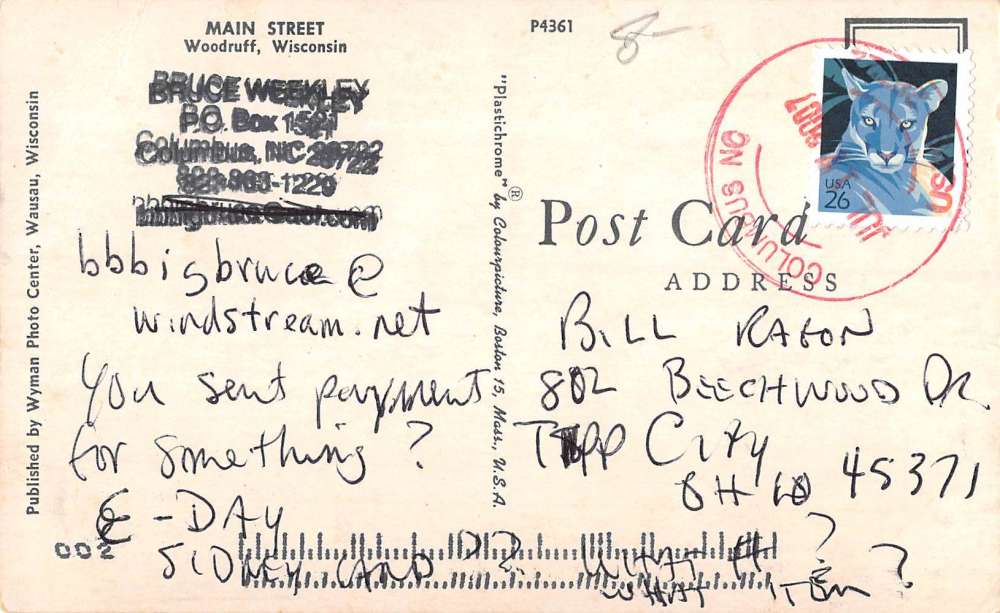 MAIN STREET
Woodruff, Wisconsin
P4361
BRUCE WEEKLEY
P.O. Box
Columbus, NC
Published by Wyman Photo Center, Wausau, Wisconsin
"Plastichrome"® by Colourpicture, Boston 15, Mass., U.S.A.
USA
26
COLUMBUS NC
Post Card
ADDRESS
bbbigbruce@
windstream.net
You sent payment
for something?
-DAY
SIDNEY CARD ?? WHAT # ?
WHAT ITEM ?
BILL RAGON
802 BEECHWOOD DR
TIPP CITY
OHIO 45371
002